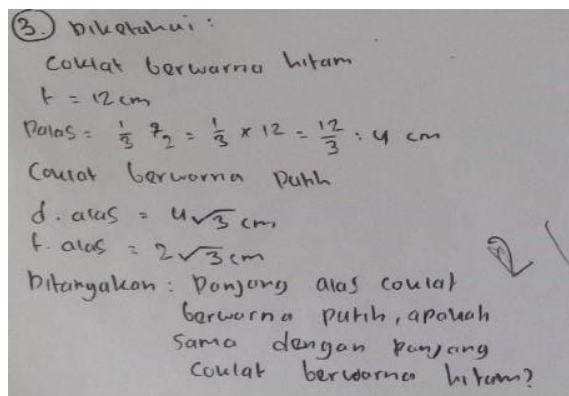 3. Diketahui :
Coklat berwarna hitam
t = 12 cm
Palas = 1/3 t2 = 1/3 x 12 = 12/3 : 4 cm
Coklat berwarna Putih
d. alas = 4√3 cm
t. alas = 2√3 cm
Ditanyakan : Panjang alas coklat
berwarna putih, apakah
sama dengan panjang
Coklat berwarna hitam?
2